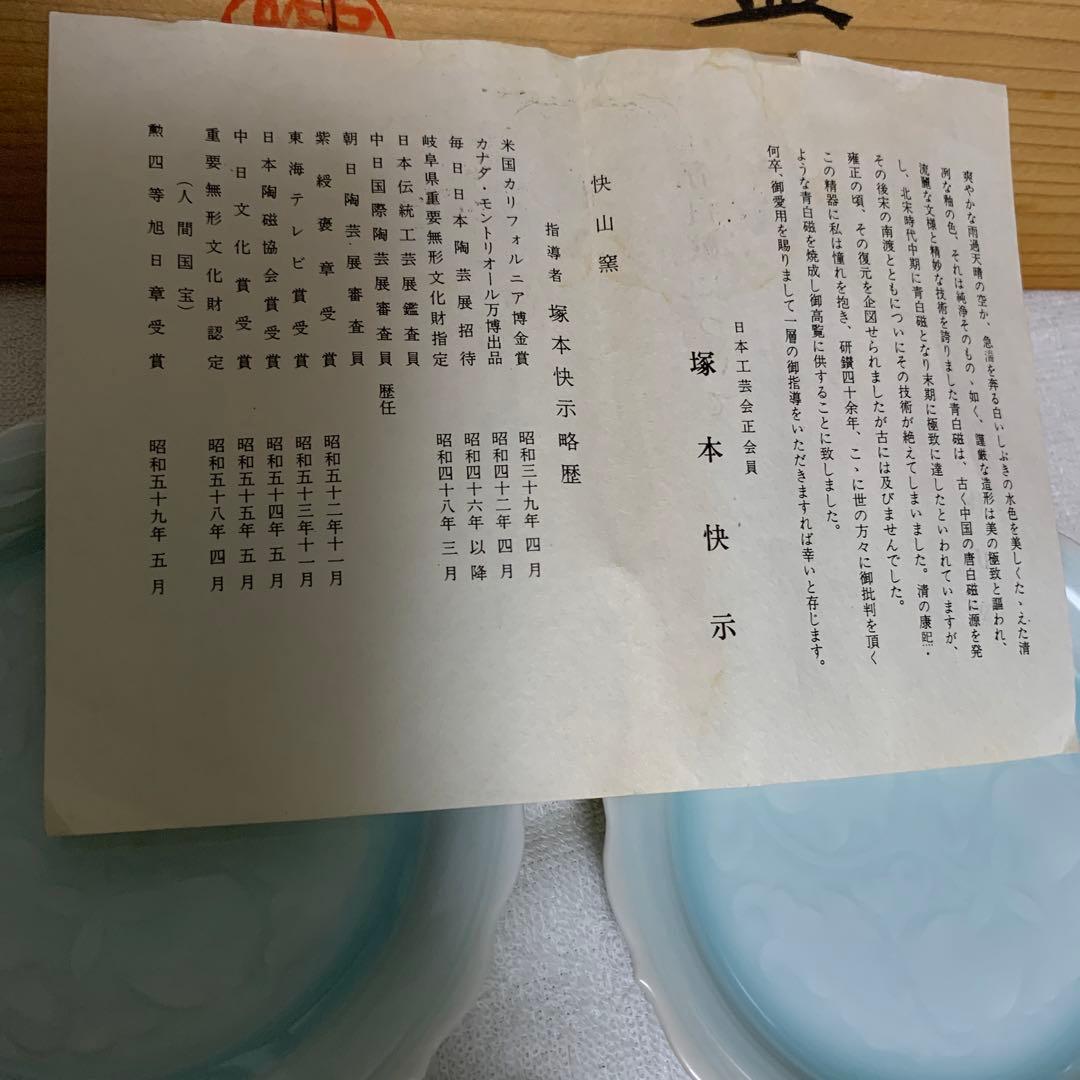 爽やかな雨過天晴の空か、急湍を奔る白いしぶきの水色を美しくたゝえた清
冽な釉の色、それは純浄そのものゝ如く、謹厳な造形は美の極致と謳われ、
流麗な文様と精妙な技術を誇りました青白磁は、古く中国の唐白磁に源を発
し、北宋時代中期に青白磁となり末期に極致に達したといわれていますが、
その後宋の南渡とともについにその技術が絶えてしまいました。清の康熙・
雍正の頃、その復元を企図せられましたが古には及びませんでした。
この精器に私は憧れを抱き、研鑽四十余年、こゝに世の方々に御批判を頂く
ような青白磁を焼成し御高覧に供することに致しました。
何卒、御愛用を賜りまして一層の御指導をいただきますれば幸いと存じます。
日本工芸会正会員
塚本快示
快山窯
指導者 塚本快示略歴
米国カリフォルニア博金賞 昭和三十九年四月
カナダ・モントリオール万博出品 昭和四十二年四月
毎日日本陶芸展招待 昭和四十六年以降
岐阜県重要無形文化財指定 昭和四十八年三月
日本伝統工芸展鑑査員
中日国際陶芸展審査員 歴任
朝日陶芸展審査員
紫綬褒章受賞 昭和五十二年十一月
東海テレビ賞受賞 昭和五十三年十一月
日本陶磁協会賞受賞 昭和五十四年五月
中日文化賞受賞 昭和五十五年五月
重要無形文化財認定 昭和五十八年四月
(人間国宝)
勲四等旭日章受賞 昭和五十九年五月